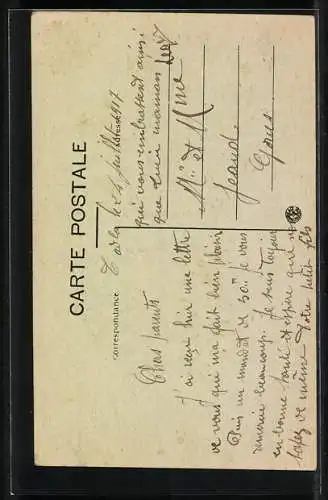 CARTE POSTALE
Correspondance
Adresse
le 24 juillet 1917
Chers parents
J'ai reçu hier une lettre
de vous qui m'a fait bien plaisir
Puis un mandat de 50 je vous
remercie beaucoup. Je suis toujour
en bonne santé et espère que v
soyez de même Votre petit fils
qui vous embrassent ainsi
que tu maman
Mr et Mme